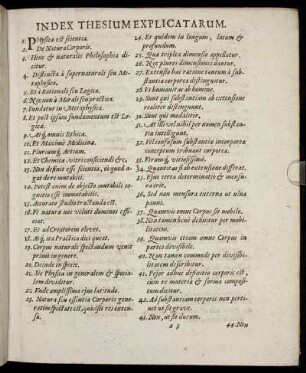 INDEX THESIUM EXPLICATARUM.
1. Physica est scientia.
2. De Natura Corporis.
3. Hinc & naturalis Philosophia dicitur.
4. Distincta à supernaturali seu Metaphysica.
5. Et à Rationali seu Logica.
6. Nec non à Morali seu practica.
7. Fundatur in Metaphysica.
8. Et post ipsius fundamentum est Logica.
9. Atq, omnis Ethica.
10. Et Maxime Medicina.
11. Plurium q, Artium.
12. Et Chemica
13. Non definit esse scientia, eo quod agat de re mutabili.
14. Potest enim de objecto mutabili cognitio esse immutabilis.
15. Accurato studio tractanda est.
16. Vt natura nos velut dominos efficiat.
17. Et ad Creatorem elevet.
18. Atq, ita Practica dici queat.
19. Corpus naturale spectandum venit primò in genere.
20. Deinde in specie.
21. Sic Physica in generalem & specialem dividitur.
22. Unde amplissima ejus latitudo.
23. Natura seu essentia Corporis generatim spectati est, quòd sit res extensa.
24. Et quidem in longum, latum & profundum.
25. Quæ triplex dimensio appellatur.
26. Nec plures dimensiones dantur.
27. Extensio hac ratione tantùm à substantia corporea distinguitur.
28. Vt humanitas ab homine.
29. Sunt qui substantiam ab extensione realiter distinguunt.
30. Sunt qui modaliter.
31. At illi vel nihil per nomen substantiæ intelligunt.
32. Vel confusam substantiæ incorporeæ conceptum tribuunt corporeæ.
33. Verum q, vitiosissimè.
34. Quantitas q, ab extensione differat.
35. Ejus certa determinatio est maximè varia.
36. Sed non mensura
37. Quamvis omne Corpus sit mobile.
38. Non tamen benè definitur per mobilitatem.
39. Quamvis etiam omne Corpus in partes divisibile.
40. Non tamen commodè per divisibilitatem describitur.
41. Pejor adhuc definitio corporis est, cum ex materia & forma compositum dicitur.
42. Ad substantiam corporis non pertinet ut sit grave.
43. Non, ut sit durum.
a 3
44. Non